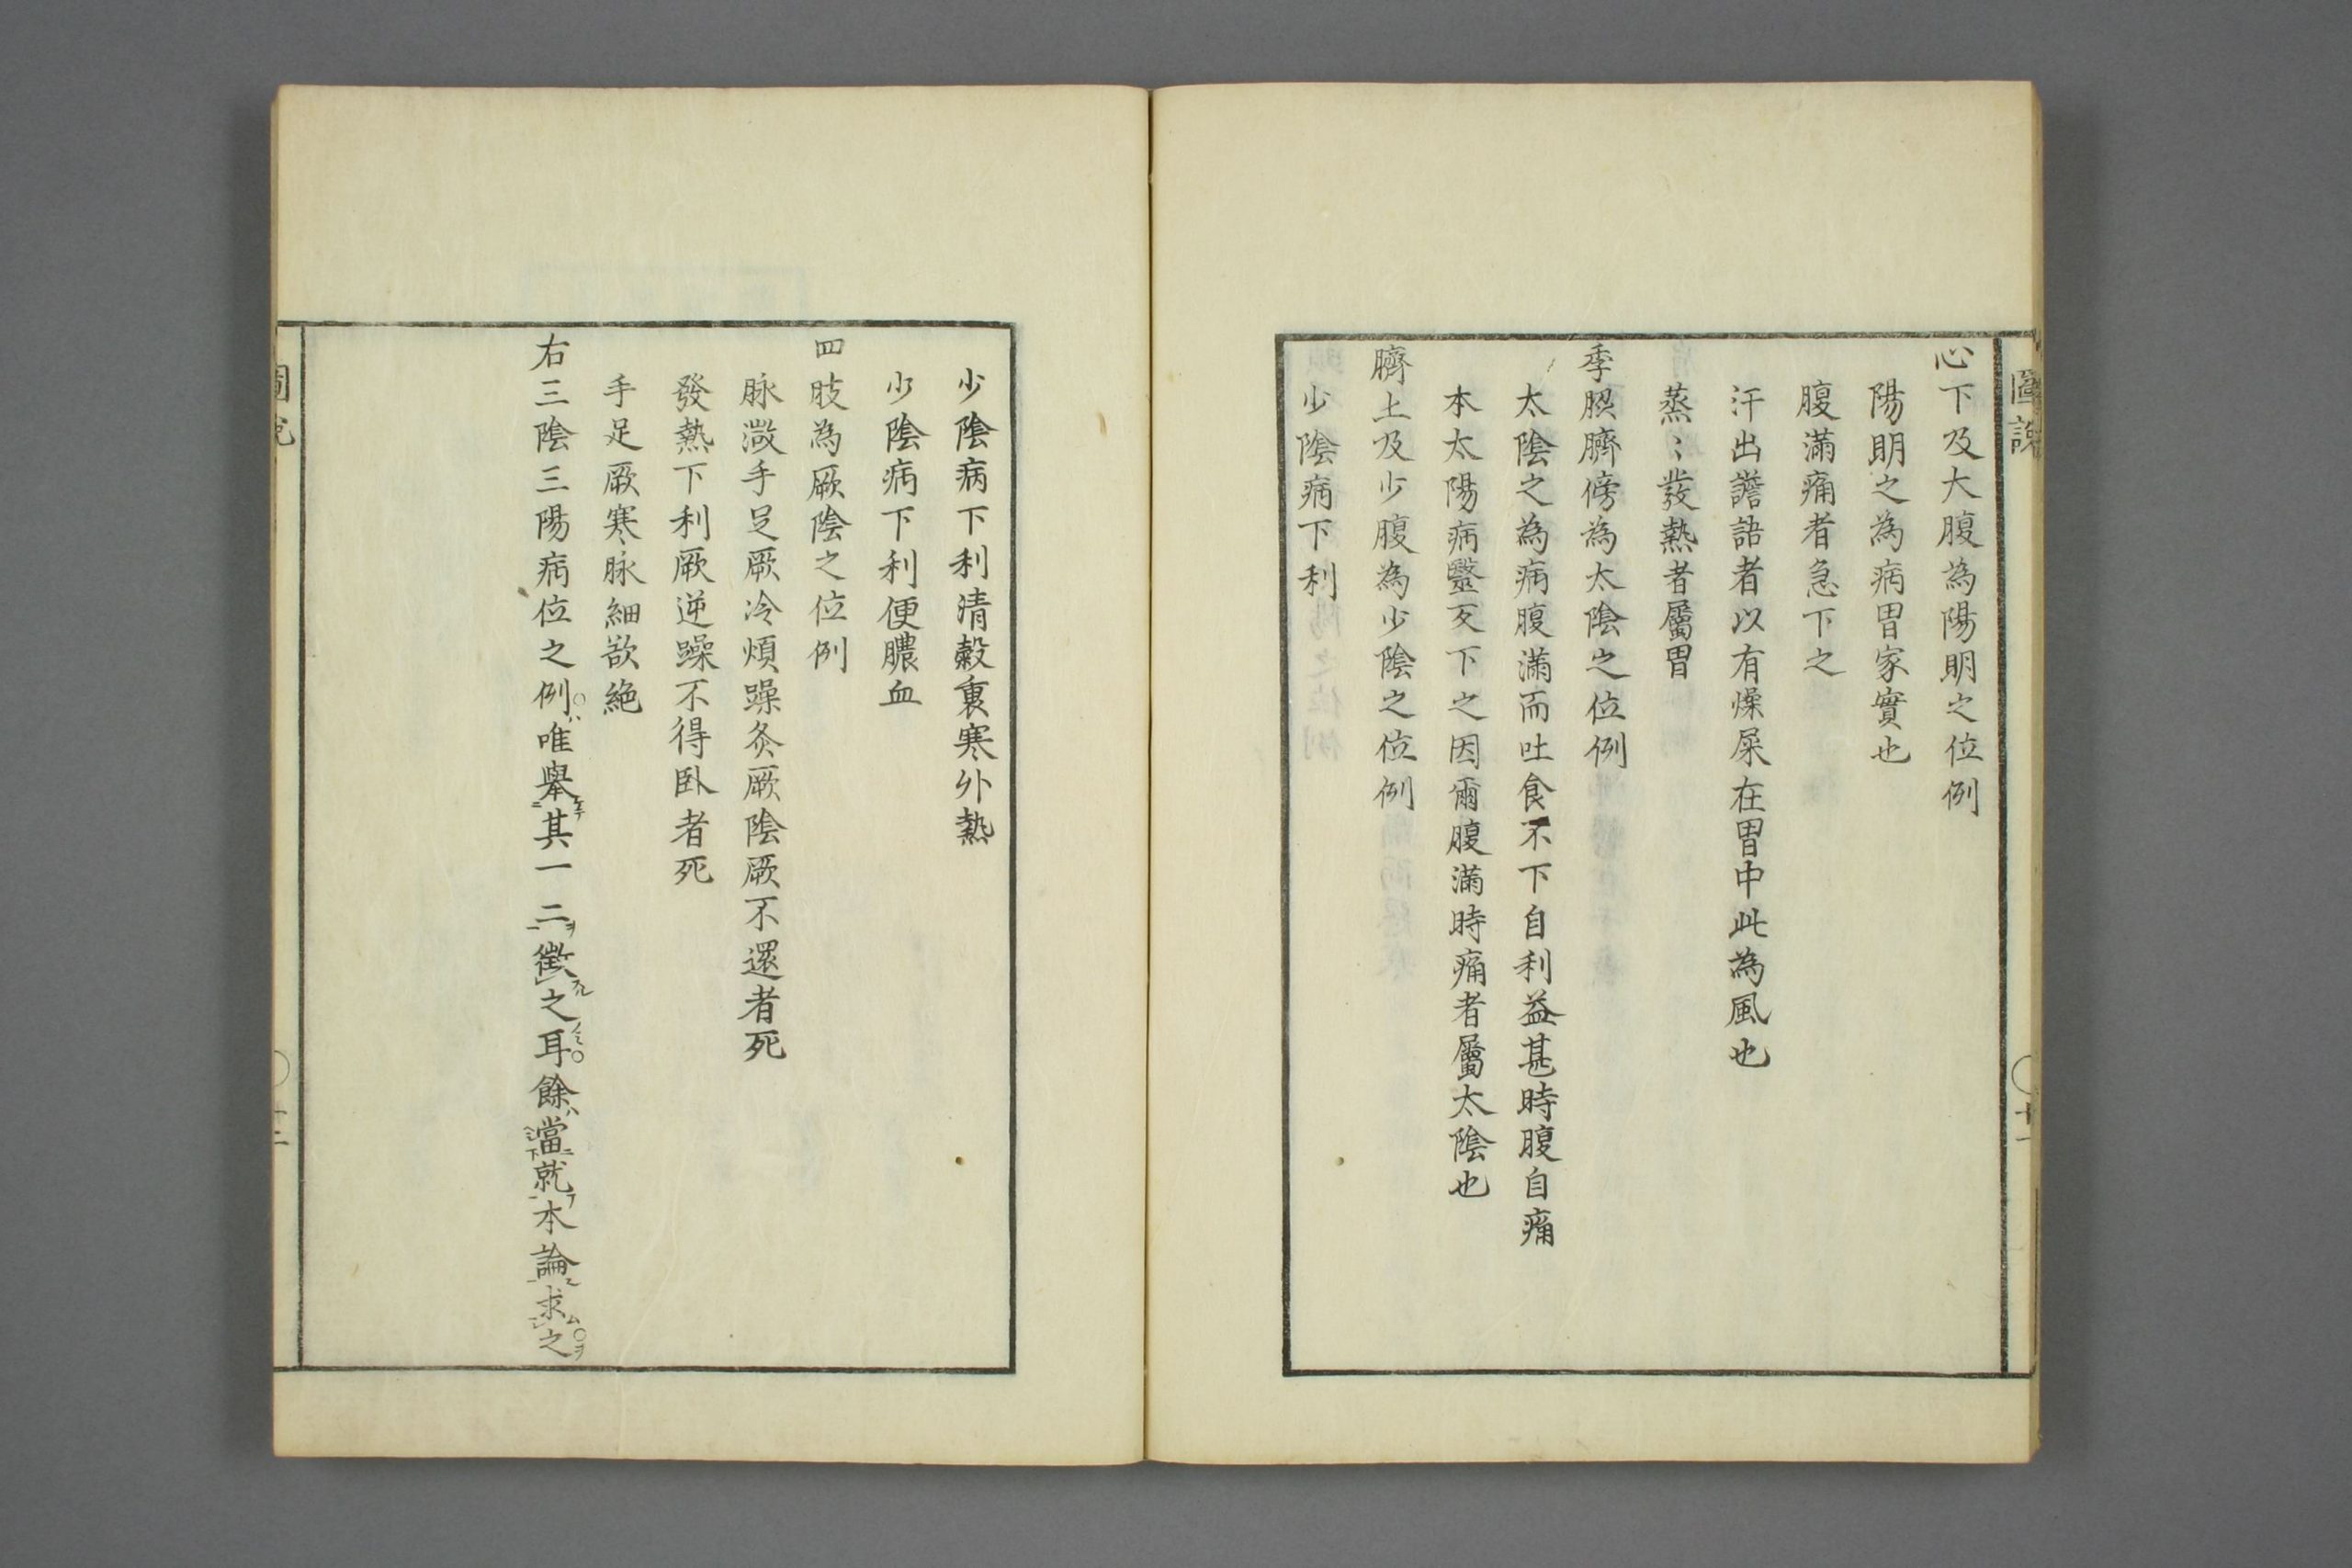 圖說
心下及大腹為陽明之位例
陽明之為病胃家實也
腹滿痛者急下之
汗出譫語者以有燥屎在胃中此為風也
蒸〻發熱者屬胃
季腴臍傍為太陰之位例
太陰之為病腹滿而吐食不下自利益甚時腹自痛
本太陽病醫反下之因爾腹滿時痛者屬太陰也
臍上及少腹為少陰之位例
少陰病下利
少陰病下利清穀裏寒外熱
少陰病下利便膿血
四肢為厥陰之位例
脉微手足厥冷煩躁灸厥陰厥不還者死
發熱下利厥逆躁不得臥者死
手足厥寒脉細欲絶
右三陰三陽病位之例ハ唯舉其一二ヲ徵之耳餘ハ當就本論求之
圖說